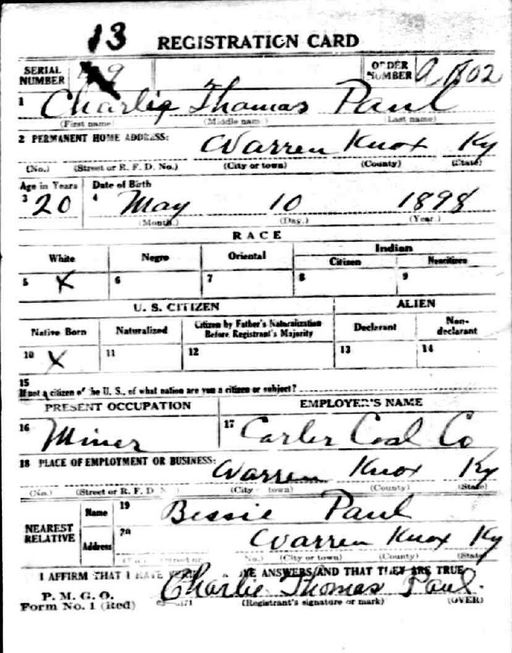 13 REGISTRATION CARD
SERIAL NUMBER 9 ORDER NUMBER
1 Charlie Thomas Paul
(First name) (Middle name) (Last name)
2 PERMANENT HOME ADDRESS: Warren Knox Ky
(No.) (Street or R. F. D. No.) (City or town) (County) (State)
Age in Years Date of Birth
3 20 4 May 10 1898
(Month.) (Day.) (Year.)
RACE
White Negro Oriental Indian
Citizen Noncitizen
5 X 6 7 8 9
U. S. CITIZEN ALIEN
Native Born Naturalized Citizen by Father's Naturalization Before Registrant's Majority Declarant Non-declarant
10 X 11 12 13 14
15
If not a citizen of the U. S., of what nation are you a citizen or subject?
PRESENT OCCUPATION EMPLOYER'S NAME
16 Miner 17 Carter Coal Co
18 PLACE OF EMPLOYMENT OR BUSINESS: Warren Knox Ky
(No.) (Street or R. F. D. (City town) (County) (State)
NEAREST RELATIVE Name 19 Bessie Paul
Address 20 Warren Knox Ky
No.) (City or town) (County) (State)
I AFFIRM THAT I HAVE ANSWERS AND THAT THEY ARE TRUE
P. M. G. O.
Form No. 1 (Red) Charlie Thomas Paul.
(Registrant's signature or mark) (OVER)